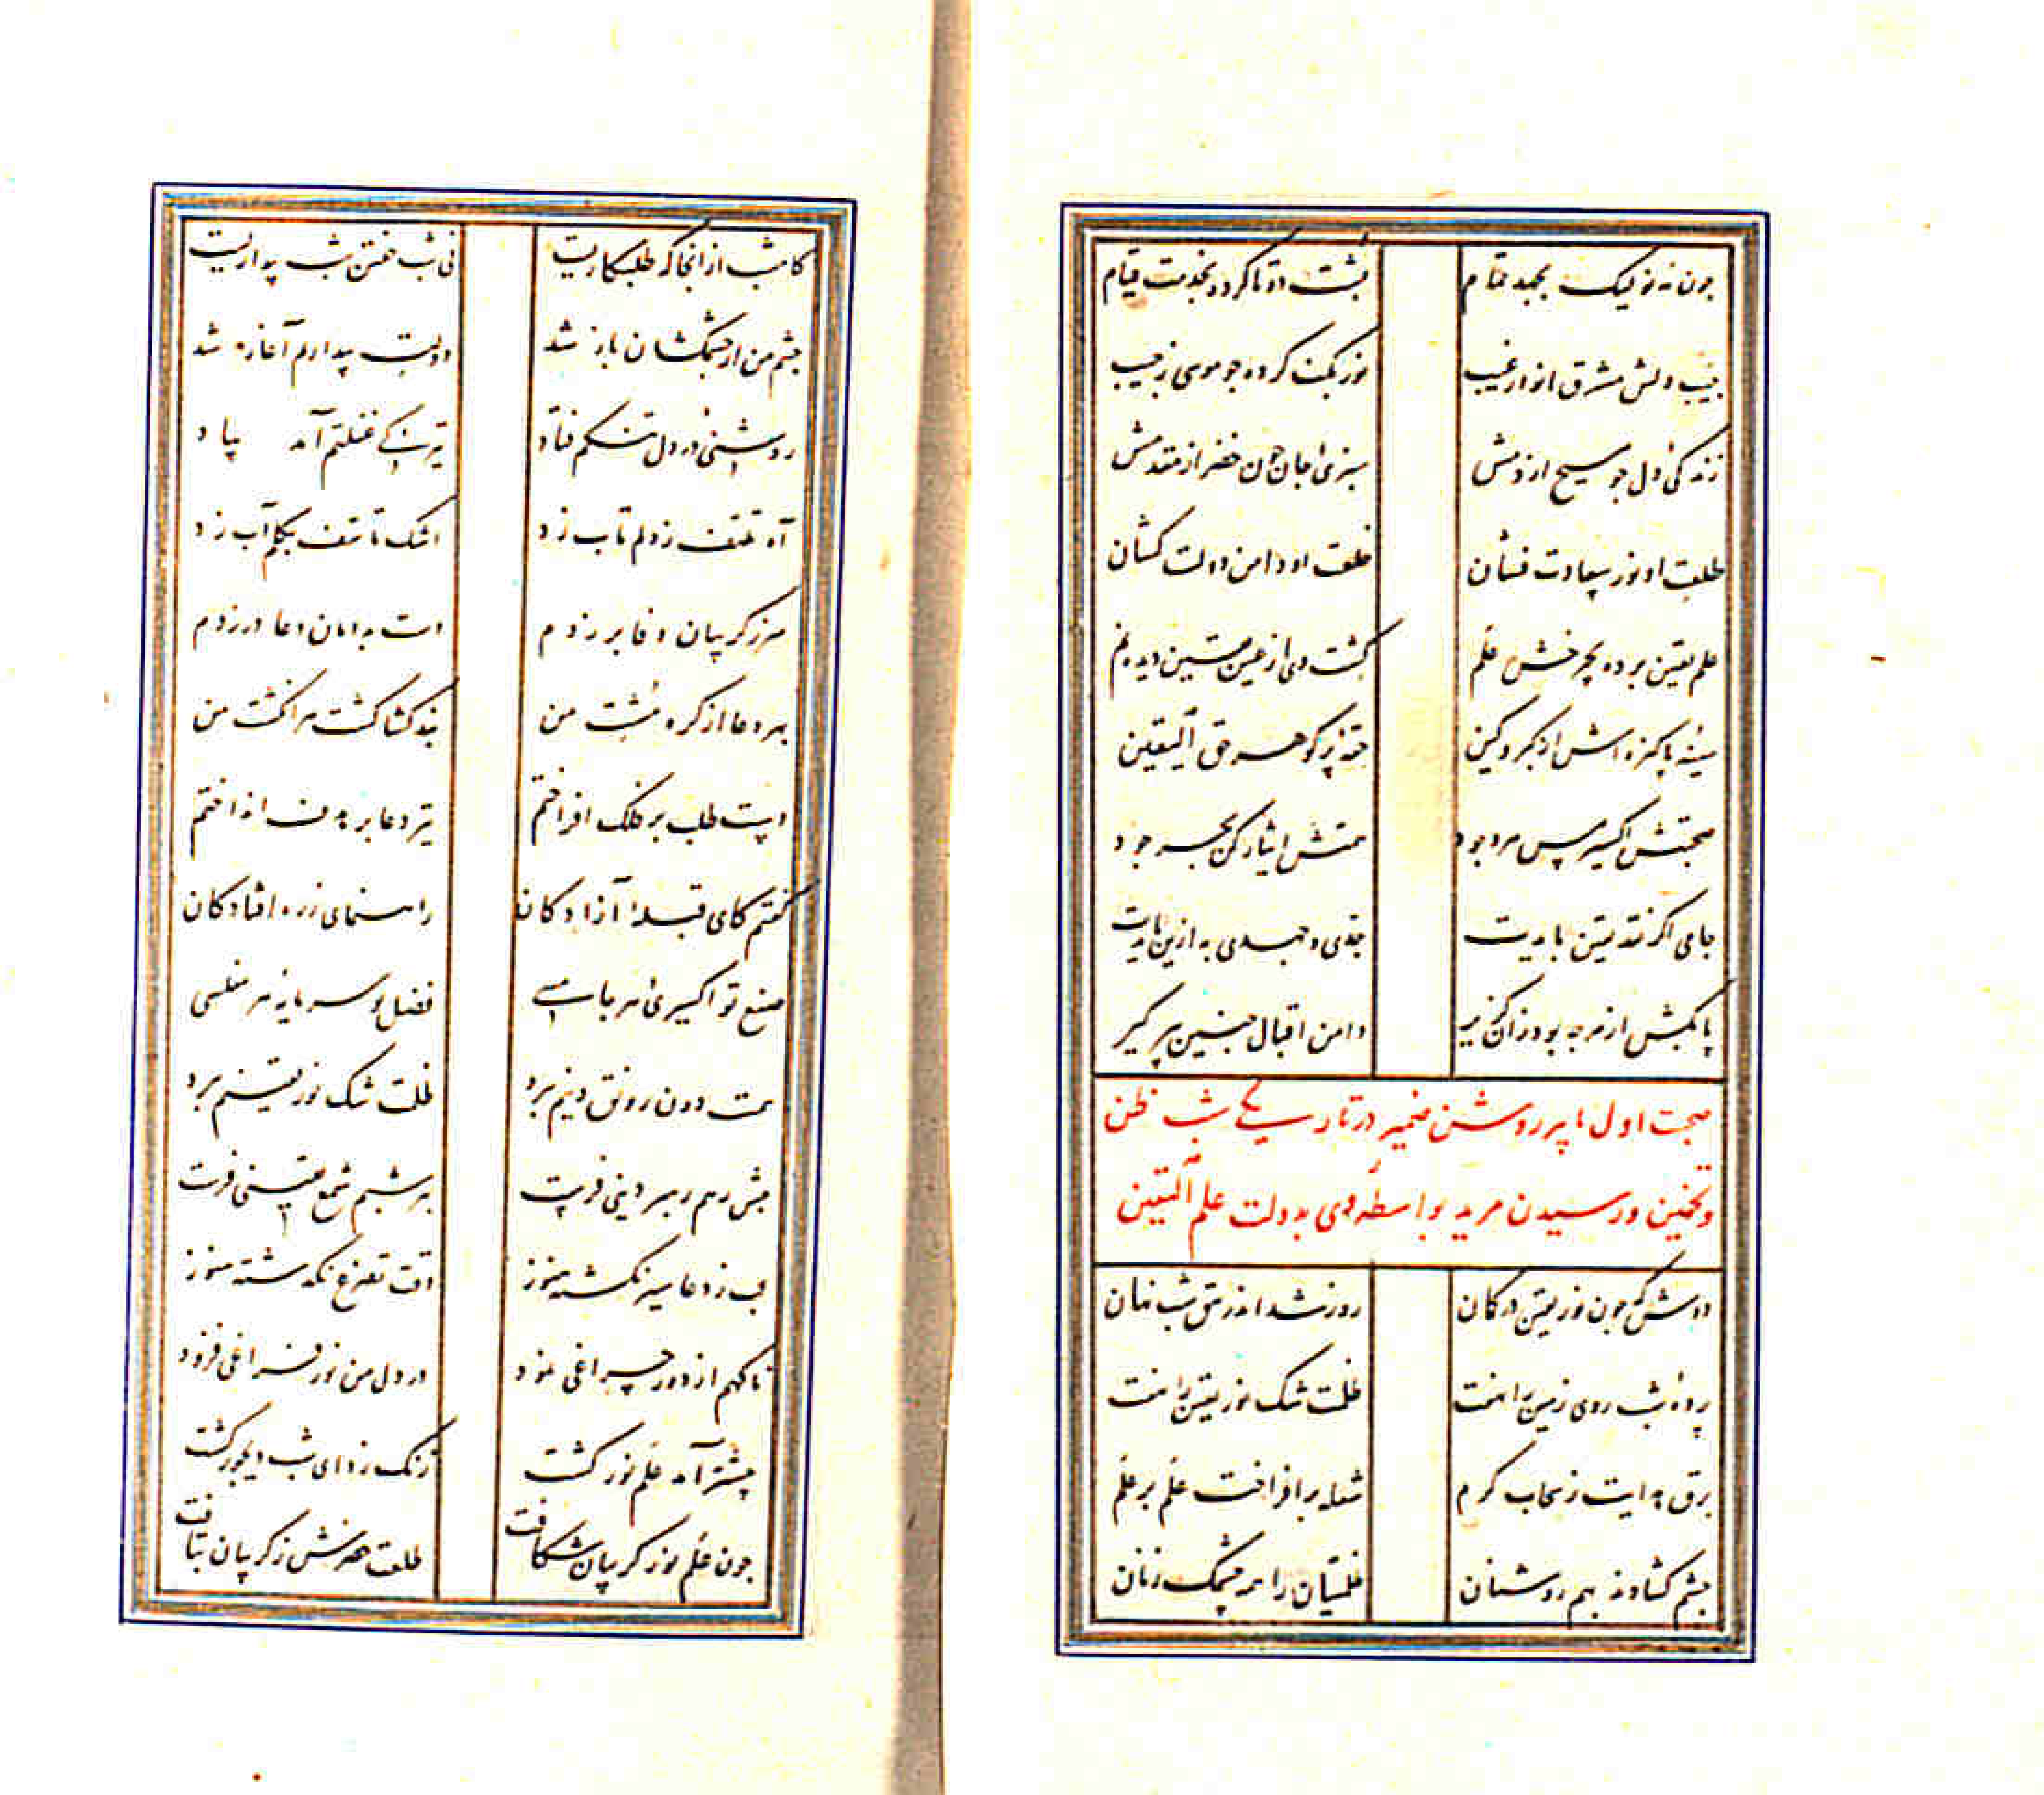 چون مه نو لیک بجهد تمام پشت دوتا کرده بخدمت قیام
جیب دلش مشرق انوار غیب نور بکف کرده چو موسی ز جیب
زندگی دل چو مسیح از دمش سبزی جان چون خضر از مقدمش
طلعت او نور سعادت فشان خلعت او دامن دولت کشان
علم یقین برده بچرخش علم گشت وی از عین یقین دیده نم
سینه پاکیزه اش از کبر و کین حقه پر گوهر حق الیقین
صحبتش اکسیر مس هر وجود همتش ایثار کن بحر جود
جامی اگر نقد یقین بایدت جدی و جهدی به ازین بایدت
پا بکش از هر چه بود زان گزیر دامن اقبال چنین پیر گیر
صحبت اول با پیر روشن ضمیر در تاریکی شب ظن
و تخمین و رسیدن مرید بواسطه وی بدولت علم الیقین
دوش که چون نور یقین در گمان روز شد اندر تتق شب نهان
پرده شب روی زمین را نهفت ظلمت شک نور یقین را نهفت
برق هدایت ز سحاب کرم شعله برافراخت علم بر علم
چشم گشادند همه روشنان ظلمتیان را همه چشمک زنان
کامشب از آنجا که طلبکاریست نی شب خفتن شب بیداریست
چشم من از چشمکشان باز شد دولت بیداریم آغاز شد
روشنی در دل تنگم فتاد تیرگی غفلتم آمد بیاد
آه تلهف ز دلم تاب زد اشک تاسف بگلم آب زد
سر ز گریبان وفا بر زدم دست بدامان دعا در زدم
بهر دعا از گره مشت من بند گشا گشت هر انگشت من
دست طلب بر فلک افراختم تیر دعا بر هدف انداختم
گفتم کای قبله آزادگان راهنمای ز ره افتادگان
صنع تو اکسیری هر جا مسی فضل تو سرمایه هر مفلسی
همت دون رونق دینم ببرد ظلمت شک نور یقینم ببرد
پیش رهم رهبر دینی فرست بهر شبم شمع یقینی فرست
لب ز دعا سیر نگشته هنوز وقت تضرع نگذشته هنوز
ناگهم از دور چراغی نمود در دل من نور فراغی فزود
پیشتر آمد علم نور گشت زنگ زدای شب دیجور گشت
چون علم نور گریبان شکافت طلعت خضرش ز گریبان بتافت